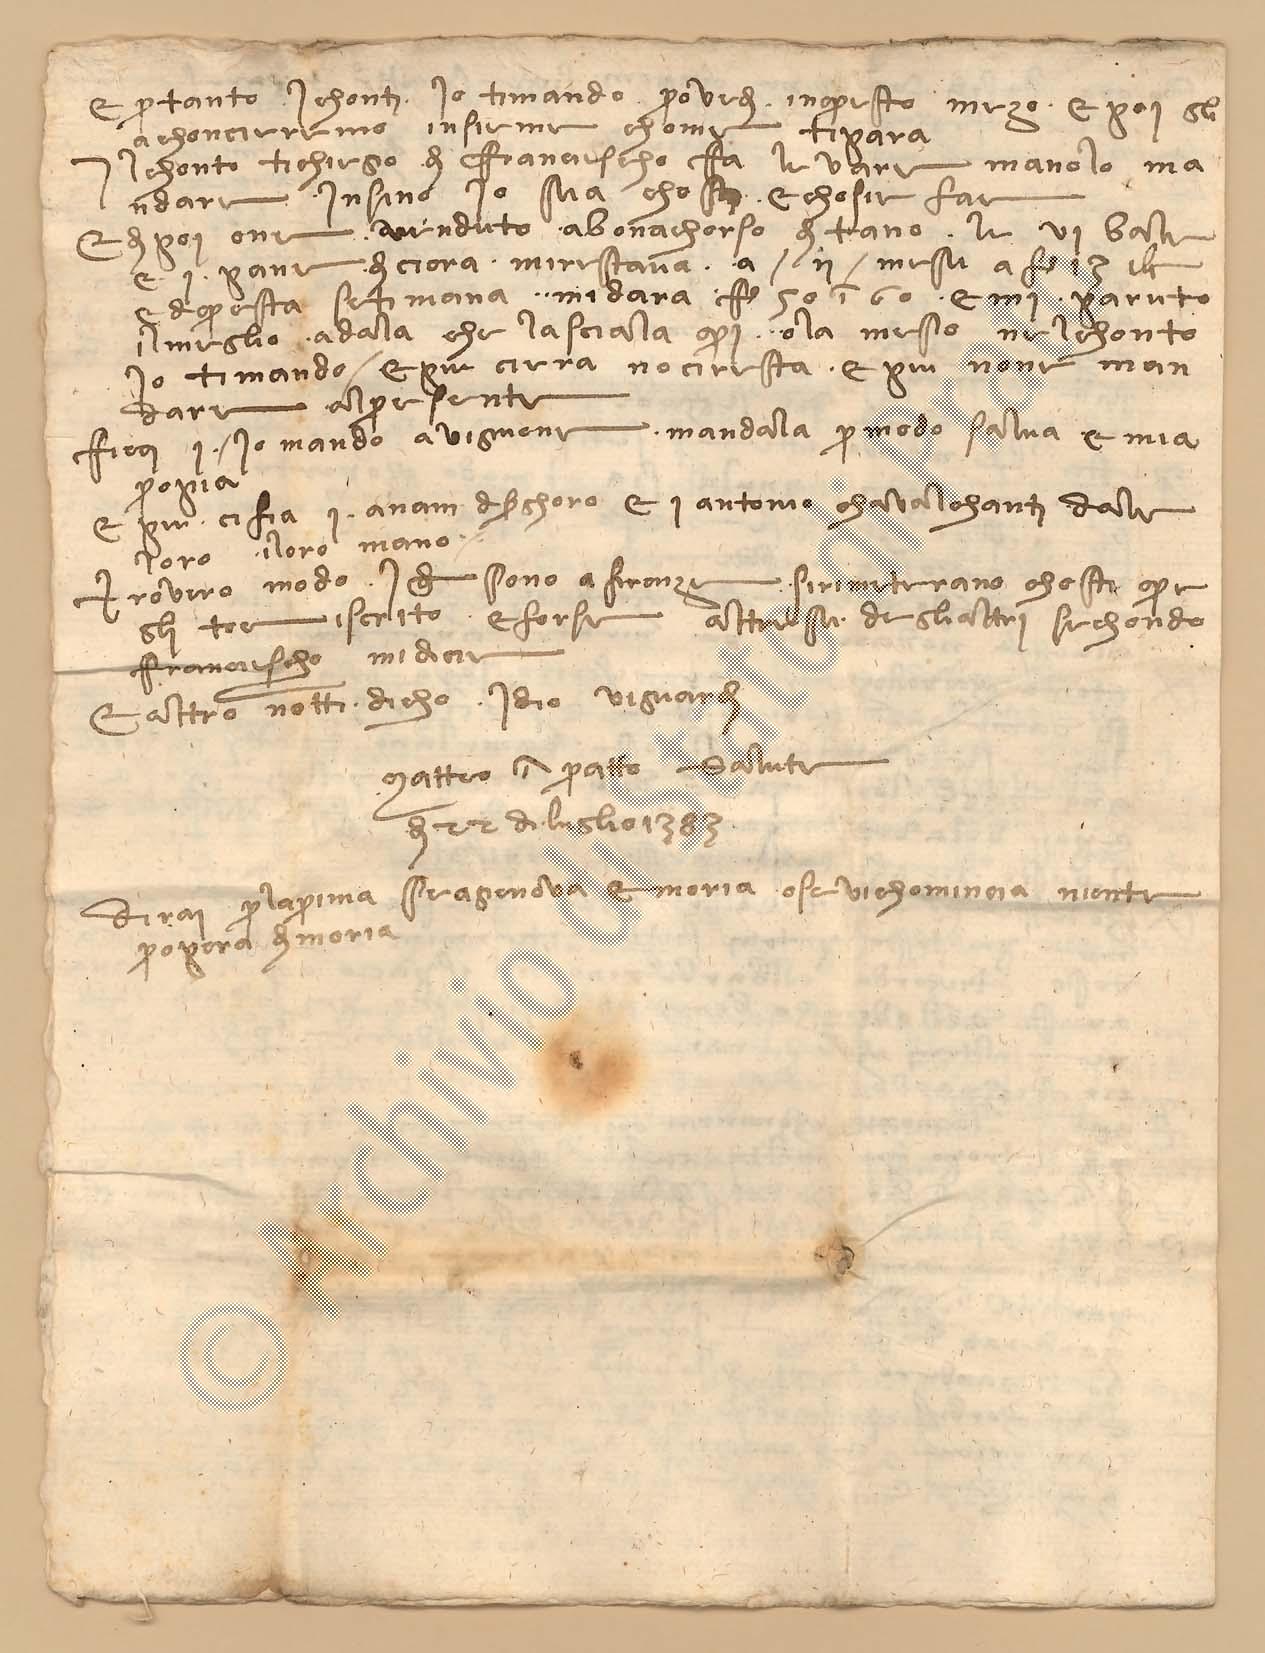 E p tanto i chonti io ti mando provedi in questo mezo e poi gli
achoncieremo insieme chome ti para
Il chonto ti chiego di Franciescho fa levare ma nolo ma
ndare insino io sia chostà e chosie fae
E di poi one venduto a Bonachorso di Tano le VI bale
e i pane di ciera mi restava a II mesi a f 13 il
ed questa setimana mi darà f 50 i 60 e mi paruto
il meglio a dala che lasciala qui ola messo nel chonto
io ti mando e più ciera no ci resta e più none man
dare al presente
i io mando a Vignone mandala p modo salva e mia
propia
E più ci sia i a nani e i Antonio Chavalchanti dale
loro i loro mano
Trovero modo sono a Firenze si rimeterano chostì o per
gli toe iscrito e forse altresì degli altri sechondo
Franciescho mi dicie
E altro no tti dicho Idio vi guardi
Matteo in Pratto salute
dì 22 di luglio 1383
Dirai p la prima s'è a Genova e moria o se vi chomincia niente
p opera di moria
© Archivio di Stato di Prato